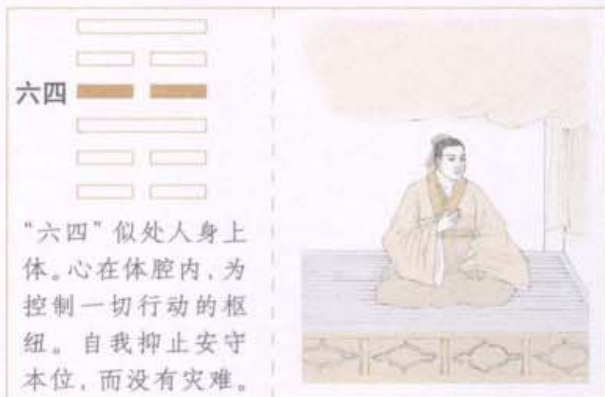 六四
“六四”似处人身上
体。心在体腔内，为
控制一切行动的枢
纽。自我抑止安守
本位，而没有灾难。